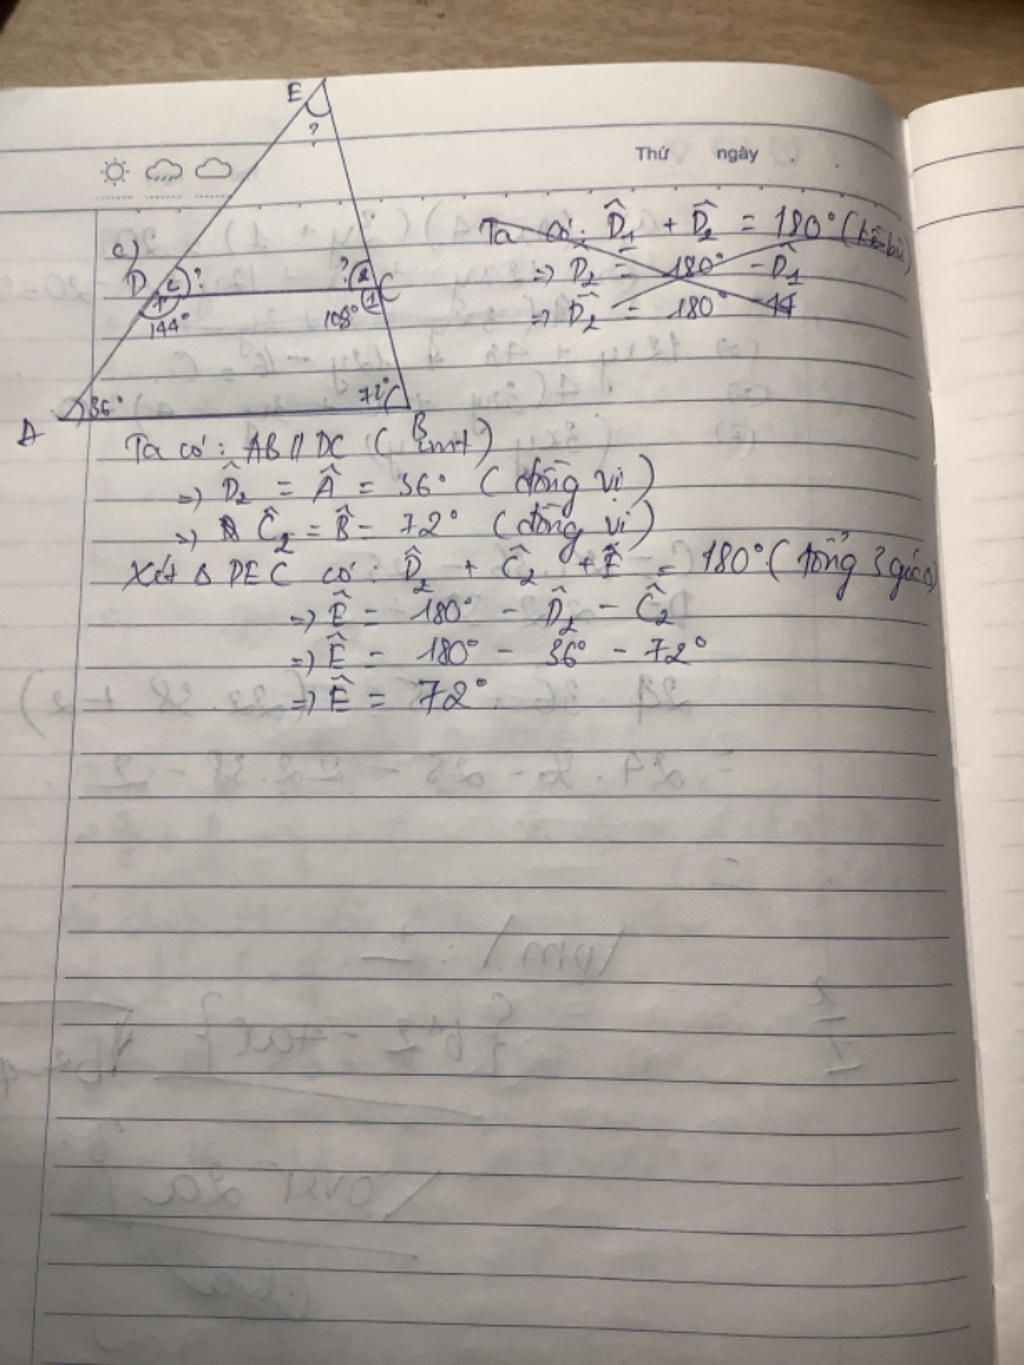 E
?
Thứ ngày
c)
D 2 ? ? 2 C
1 1
144° 108°
36° 72°
A B
Ta có: D̂₁ + D̂₂ = 180° (kề bù)
=> D̂₂ = 180° - D̂₁
=> D̂₂ = 180°
Ta có: AB // DC (cmt)
=> D̂₂ = Â = 36° (đồng vị)
=> Ĉ₂ = B̂ = 72° (đồng vị)
Xét Δ DEC có: D̂₂ + Ĉ₂ + Ê = 180° (tổng 3 góc Δ)
=> Ê = 180° - D̂₂ - Ĉ₂
=> Ê = 180° - 36° - 72°
=> Ê = 72°